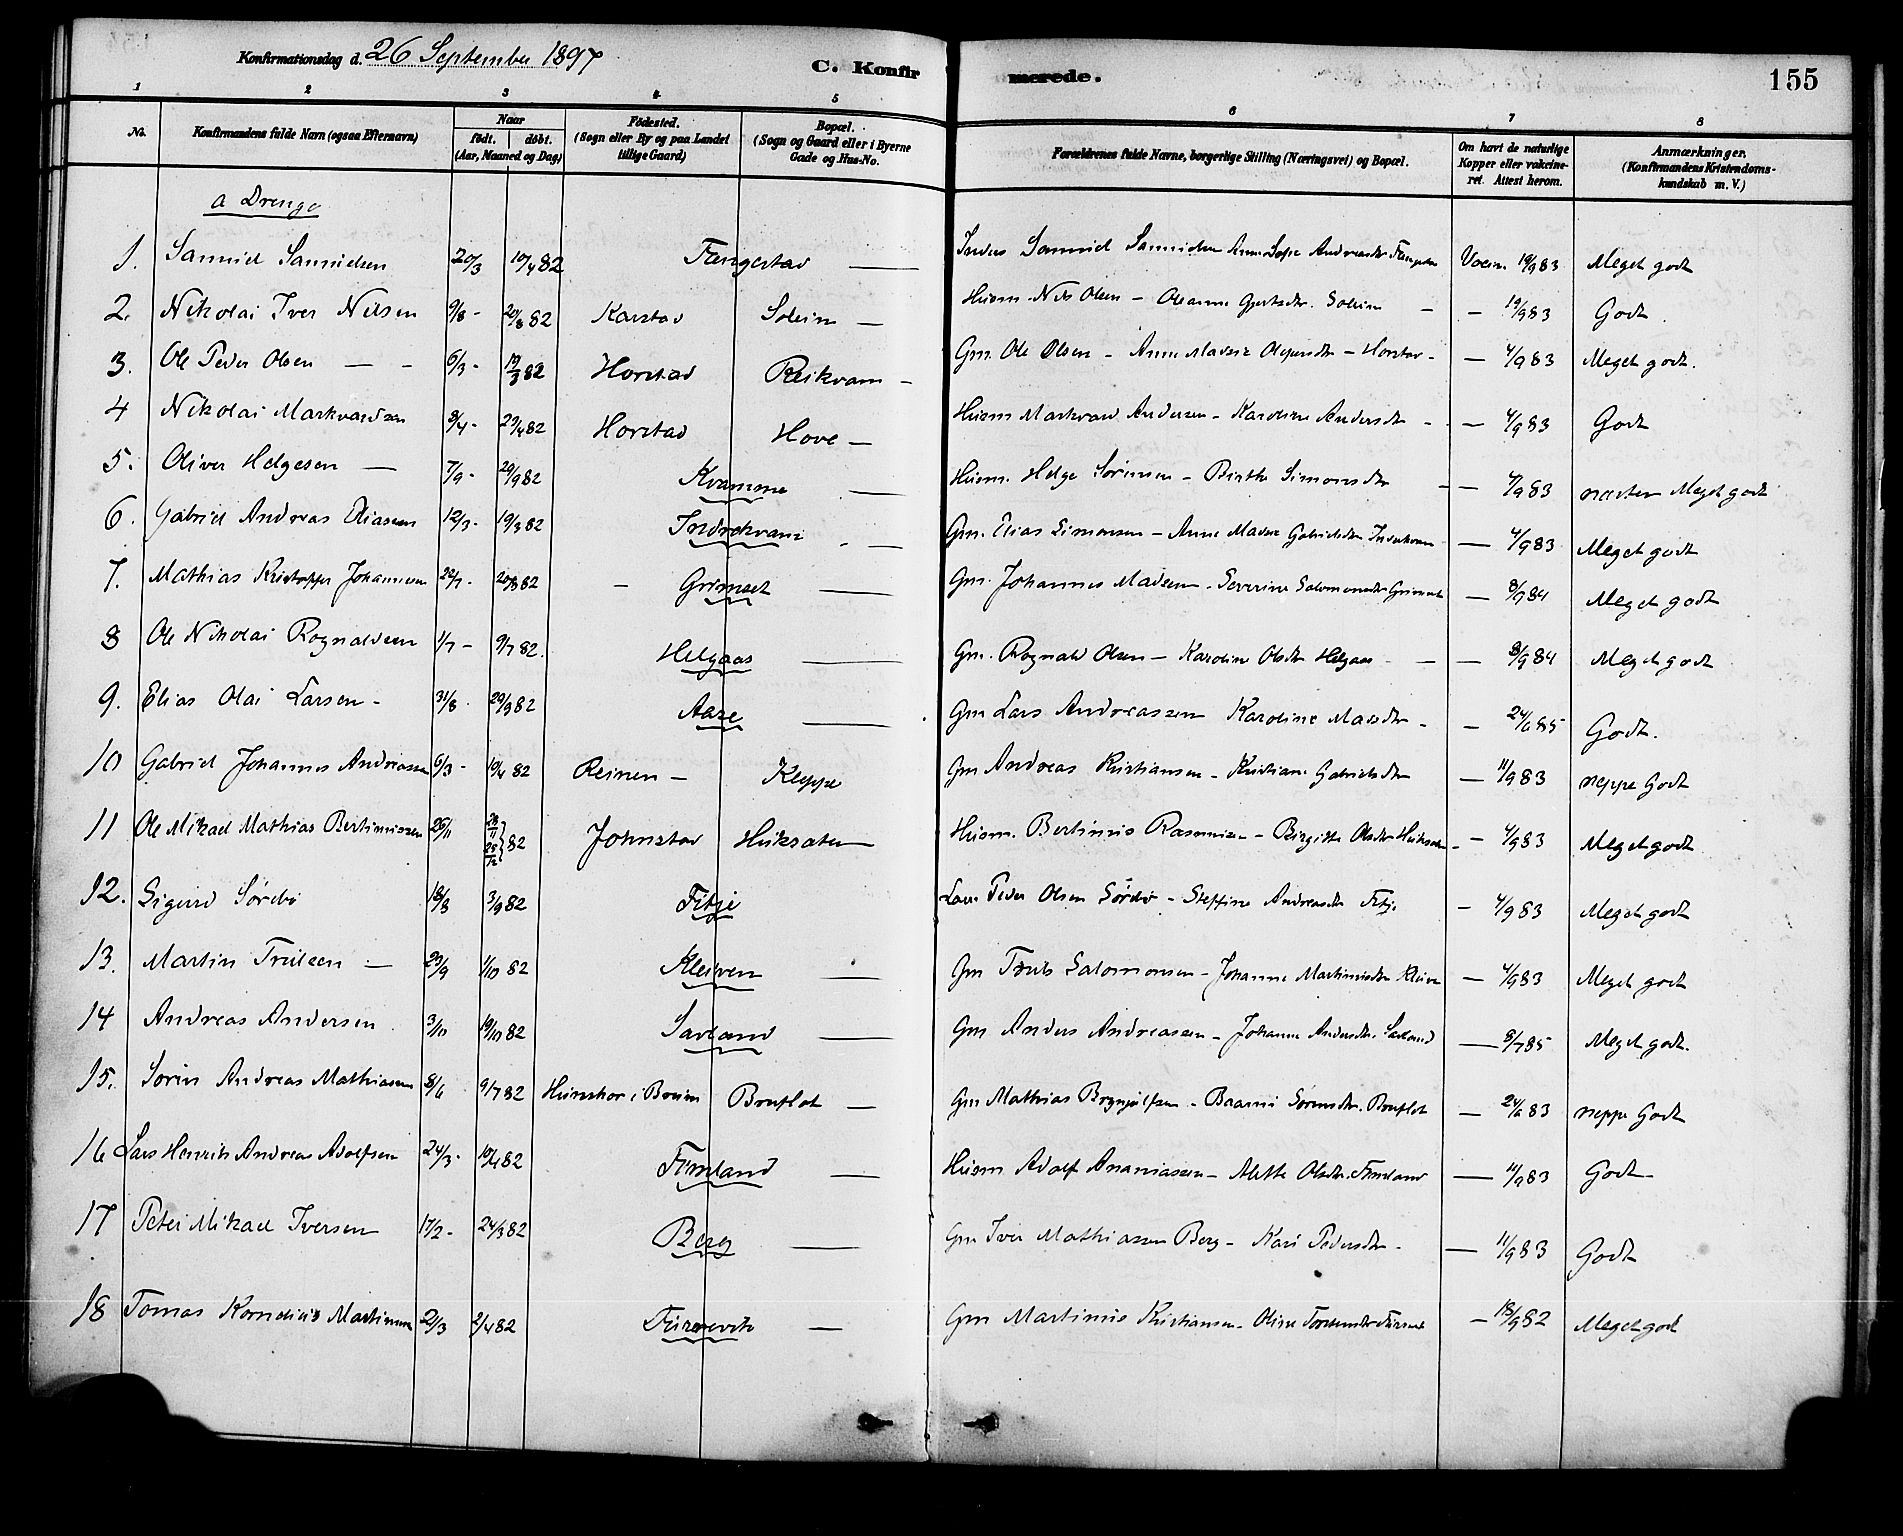 Konfirmationsdag d. 26 September 1897 C. Konfirmerede. 155
1 2 3 4 5 6 7 8
No. Konfirmandens fulde Navn (ogsaa Efternavn) Naar født. døbt. (Aar, Maaned og Dag) Fødested. (Sogn eller By og paa Landet tillige Gaard) Bopæl. (Sogn og Gaard eller i Byerne Gade og Hus-No. Forældrenes fulde Navne, borgerlige Stilling (Næringsvei) og Bopæl. Om havt de naturlige Kopper eller vakcineret. Attest herom. Anmærkninger. (Konfirmandens Kristendomskundskab m. V.)
a Drenge
1. Samuel Samuelsen 20/3 10/4 82 Fængestad — Samuel Samuelsen Anne Sofie Andreasdtr. Vaccin. 19/9 83 Meget godt
2. Nikolai Iver Nilsen 9/8 - 20/8 82 Karstad Soleim — Husm. Nils Olsen — Oleanne Gjertsdtr. Soleim — — 19/9 83 Godt.
3. Ole Peder Olsen — - 6/3 - 19/3 82 Horstad Reikvam — Gm. Ole Olsen — Anne Madsine Olsdtr — Horstad — 4/9 83 Meget godt.
4 Nikolai Markvardsen 8/4 - 29/4 82 Horstad Hove — Husm Markvard Andersen — Karoline Andersdtr - — 4/9 83 Godt
5. Oliver Helgesen — 7/9 - 29/9 82 Kvamme — Husm. Helge Sørensen — Birthe Simonsdtr — 4/9 83 næsten Meget godt
6. Gabriel Andreas Eliassen 12/3 - 19/3 82 Indrekvam — Gm. Elias Simonsen — Anne Madsine Gabrielsdtr Indrekvam — 4/9 83 Meget godt
7. Mathias Kristoffer Johannesen 22/7 - 20/8 82 — Grimset — Gm. Johannes Madsen - Severine Salomonsdtr Grimset — 8/9 84 Meget godt
8 Ole Nikolai Rognaldsen 1/7 - 9/7 82. Helgaas — Gm. Rognald Olsen — Karoline Olsdtr Helgaas — — 8/9 84 Meget godt
9. Elias Olai Larsen - 31/8 - 29/9 82 Aase — Gm Lars Andreassen Karoline Madsdtr - — 24/6 85 Godt.
10 Gabriel Johannes Andreassen 6/3 - 10/4 82 Reinen — Kleppe Gm Andreas Kristiansen — Kristiane Gabrielsdtr — 11/9 83 neppe Godt
11 Ole Mikael Mathias Bertinussen 26/11 28/11 28/12 } 82 Johnstad Huksæter — Husm. Bertinus Rasmussen — Birgitte Olsdtr - — 4/9 83 Meget godt
12. Sigurd Sørebø 18/8 3/9 82 Fitje Peder Olsen Sørebø — Steffine Andreasdtr Fitje — 4/9 83 Meget godt
13. Martin Trulsen — 23/9 1/10 82 Kleiven — Gm Truls Salomonsen — Johanne Martinusdtr Kleiven — 4/9 83 Meget godt
14 Andreas Andersen 3/10 19/10 82 Savland — Gm Anders Andreassen — Johanne Andersdtr. Savland — 8/7 85 Meget godt.
15. Søren Andreas Mathiassen 8/6 9/7 82 i Breim Bruflot — Gm Mathias Brynjulfsen — Sørensdtr. Bruflot — 24/6 83 neppe Godt
16 Lars Henrik Andreas Adolfsen 24/3 - 10/4 82 Fimland — Husm Adolf Ananiassen — Alette Olsdtr. Fimland — 11/9 83 Godt —
17 Peter Mikael Iversen 17/2 - 24/3 82 Berg — Gm Iver Mathiassen Berg — Kari Pedersdtr - — 11/9 83 Godt
18 Tomas Kornelius Martinussen 21/3 2/4 82 Furesvik — Gm Martinus Kristiansen — Oline — 18/9 82 Meget godt